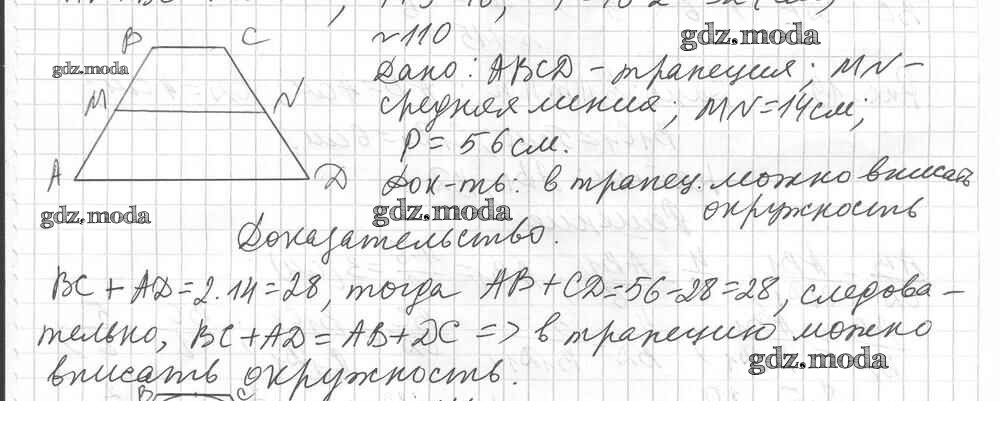 №110
gdz.moda
B C
gdz.moda
Дано: ABCD - трапеция; MN -
M N
средняя линия; MN = 14 см;
P = 56 см.
A D
Док-ть: в трапец. можно вписать
окружность
gdz.moda
gdz.moda
Доказательство.
BC + AD = 2.14 = 28, тогда AB + CD = 56 - 28 = 28, следова-
тельно, BC + AD = AB + DC => в трапецию можно
gdz.moda
вписать окружность.
B C